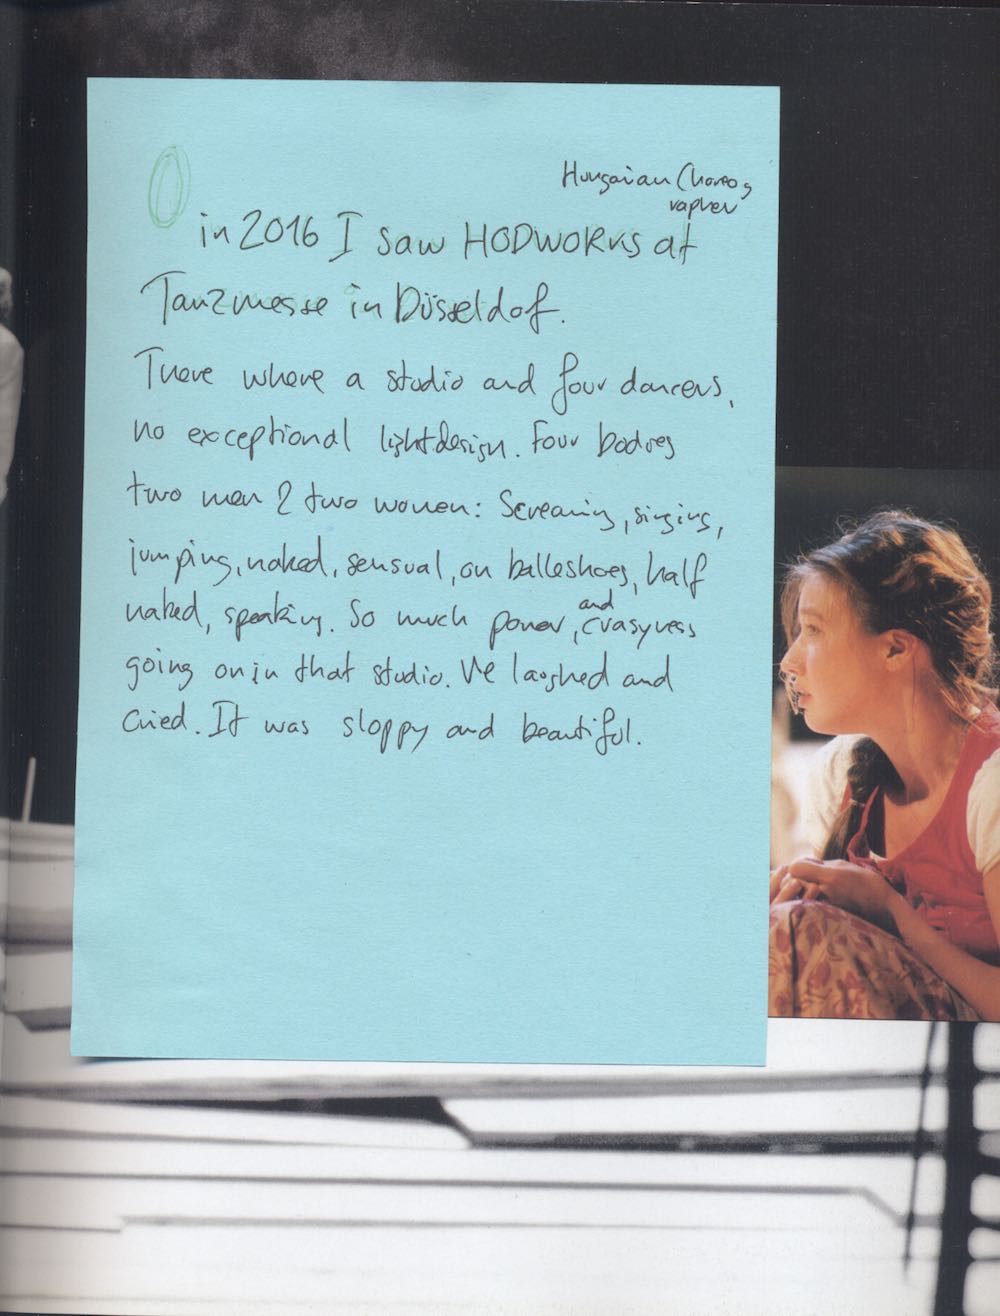 Hungarian Choreog
rapher
in 2016 I saw HODWORKS at
Tanzmesse in Düsseldof.
There where a studio and four dancers,
no exceptional lightdesign. Four bodies
two men & two women: Screaming, singing,
jumping, naked, sensual, on balleshoes, half
naked, speaking. So much power, and crasyness
going on in that studio. We laughed and
cried. It was sloppy and beautiful.